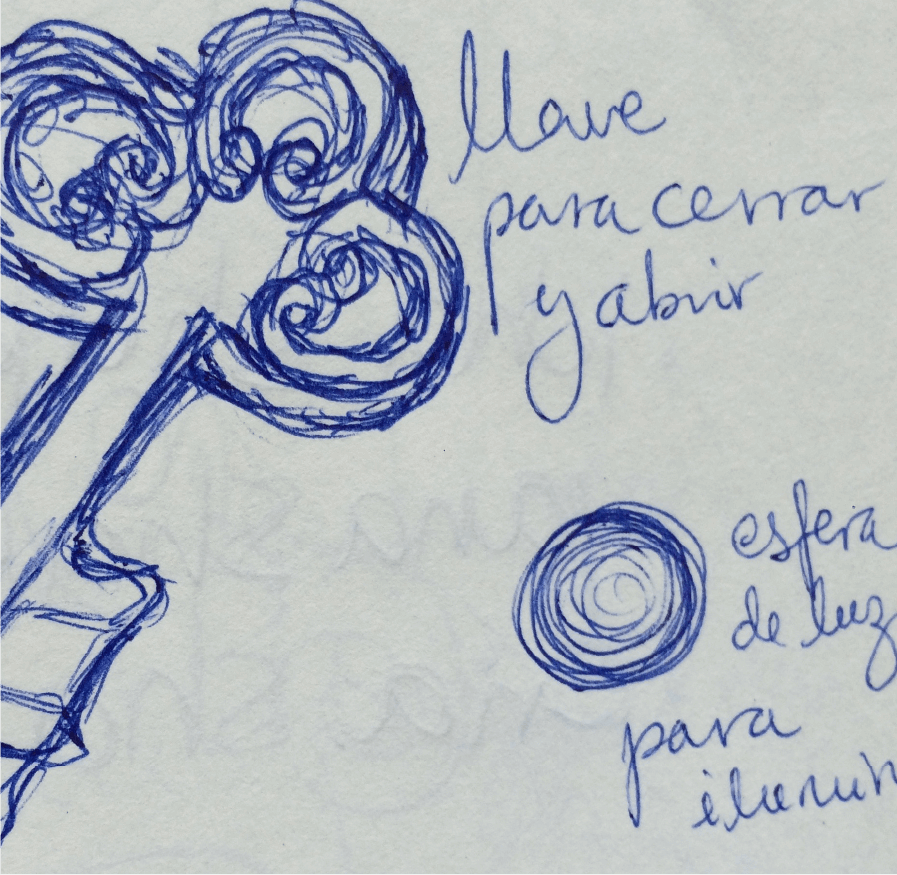 llave
para cerrar
y abrir
esfera
de luz
para
ilumin